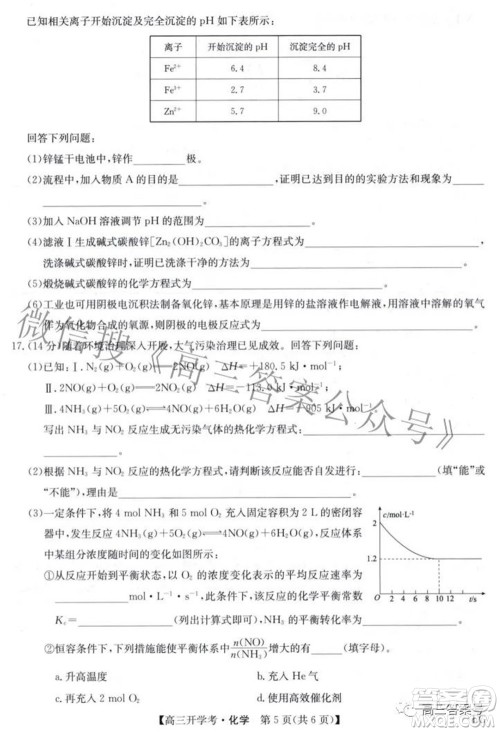 已知相关离子开始沉淀及完全沉淀的 pH 如下表所示:
离子 开始沉淀的 pH 沉淀完全的 pH
Fe²⁺ 6.4 8.4
Fe³⁺ 2.7 3.7
Zn²⁺ 5.7 9.0
回答下列问题:
(1)锌锰干电池中,锌作__________极。
(2)流程中,加入物质 A 的目的是__________,证明已达到目的的实验方法和现象为__________
__________。
(3)加入 NaOH 溶液调节 pH 的范围为__________。
(4)滤液 Ⅰ 生成碱式碳酸锌[Zn₂(OH)₂CO₃]的离子方程式为__________,
洗涤碱式碳酸锌时,证明已洗涤干净的方法为__________。
(5)煅烧碱式碳酸锌的化学方程式为__________。
(6)工业也可用阴极电沉积法制备氧化锌,基本原理是用锌的盐溶液作电解液,用溶液中的氧气
作为氧化物合成的氧源,则阴极的电极反应式为__________。
17.(14 分)随着环境治理深入开展,大气污染治理已见成效。回答下列问题:
(1)已知:Ⅰ. N₂(g)+O₂(g)══2NO(g) ΔH=+180.5 kJ·mol⁻¹;
Ⅱ. 2NO(g)+O₂(g)⇌2NO₂(g) ΔH=-113.0 kJ·mol⁻¹;
Ⅲ. 4NH₃(g)+5O₂(g)⇌4NO(g)+6H₂O(g) ΔH=-905 kJ·mol⁻¹
写出 NH₃ 与 NO₂ 反应生成无污染气体的热化学方程式:__________
__________。
(2)根据 NH₃ 与 NO₂ 反应的热化学方程式,请判断该反应能否自发进行__________(填“能”或
“不能”),理由是__________。
(3)一定条件下,将 4 mol NH₃ 和 5 mol O₂ 充入固定容积为 2 L 的密闭容
器中,发生反应 4NH₃(g)+5O₂(g)⇌4NO(g)+6H₂O(g),体系
中某组分浓度随时间的变化如图所示:
c/mol·L⁻¹
2
1.2
0 2 4 6 8 10 12 t/s
①从反应开始到平衡状态,以 O₂ 的浓度变化表示的平均反应速率为
__________mol·L⁻¹·s⁻¹,在该条件下,该反应的化学平衡常数
Kc=__________(列出计算式即可),NH₃ 的平衡转化率为__________。
②恒容条件下,下列措施能使平衡体系中n(NO)/n(NH₃)增大的有__________(填字母)。
a. 升高温度 b. 充入 He 气
c. 再充入 2 mol O₂ d. 使用高效催化剂
【高三开学考·化学 第 5 页(共 6 页)】
微信搜《高三答案公众号》
高三答案号